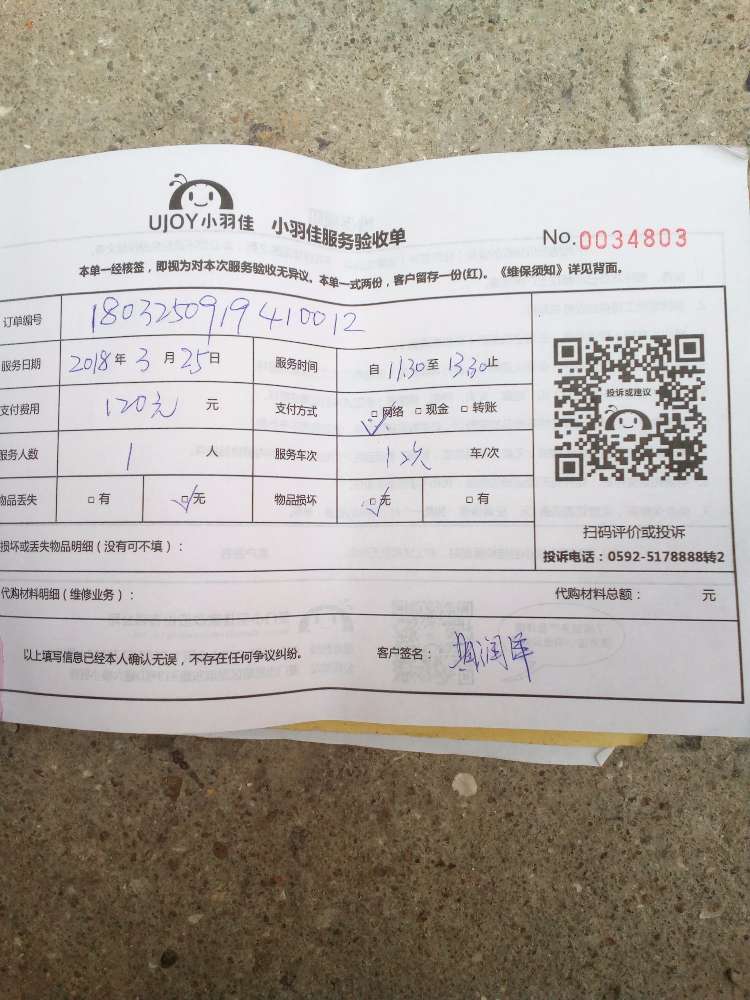 UJOY小羽佳 小羽佳服务验收单 No.0034803
本单一经核签，即视为对本次服务验收无异议。本单一式两份，客户留存一份(红)。《维保须知》详见背面。
订单编号 1803250919410012
服务日期 2018年3月25日 服务时间 自11.30至13.30止
支付费用 120元 元 支付方式 □网络 □现金 □转账
服务人数 1 人 服务车次 1次 年/次
物品丢失 □有 □无 物品损坏 □无 □有
损坏或丢失物品明细（没有可不填）：
投诉或建议
扫码评价或投诉
投诉电话：0592-5178888转2
代购材料明细（维修业务）： 代购材料总额： 元
以上填写信息已经本人确认无误，不存在任何争议纠纷。 客户签名：